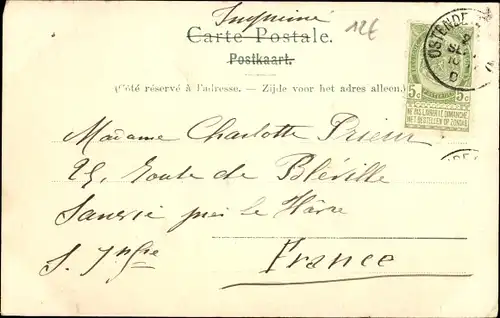 Imprimé
12€
Carte Postale.
Postkaart.
(Côté réservé à l'adresse. - Zijde voor het adres alleen.)
OSTENDE
5c 5c
NE PAS LIVRER LE DIMANCHE
NIET BESTELLEN OP ZONDAG
Madame Charlotte Prieur
25, Route de Bléville
Sanvic près le Hâvre
S. Infre
France